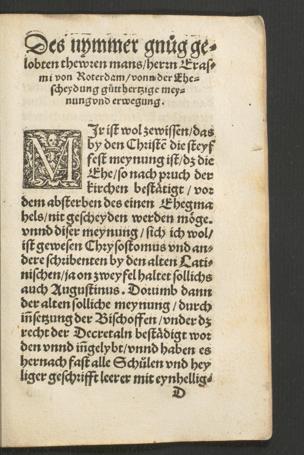 Des nymmer gnůg ge-
lobten thewren mans/herrn Eras-
mi von Roterdam/vonn der Ehe-
scheydung gůtthertzige mey-
nung vnd erwegung.
MIr ist wol zewissen/das
by den Christē die steyf
fest meynung ist/dz die
Ehe/so nach pruch der
kirchen bestâtigt/vor
dem absterben des einen Ehegma
hels/nit gescheyden werden môge.
vnnd diser meynung/sich ich wol/
ist gewesen Chrysostomus vnd an-
dere schribenten by den alten Lati-
nischen/ja on zweyfel haltet sollichs
auch Augustinus. Dorumb dann
der alten solliche meynung/durch
insetzung der Bischoffen/vnder dz
recht der Decretaln bestâdigt wor
den vnnd ingelybt/vnnd haben es
hernach fast alle Schůlen vnd hey
liger geschrifft leerer mit eynhellig-
D